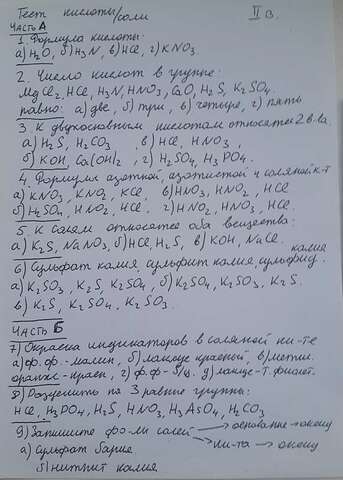 Тест кислоты/соли II в.
Часть А
1. Формула кислоты:
а) H2O, б) H3N, в) HCl, г) KNO3.
2. Число кислот в группе:
MgCl2, HCl, H3N, HNO3, CaO, H2S, K2SO4.
равно: а) две, б) три, в) четыре, г) пять
3. К двухосновным кислотам относятся 2 в-ва
а) H2S, H2CO3 в) HCl, HNO3,
б) KOH, Ca(OH)2, г) H2SO4, H3PO4.
4. Формулы азотной, азотистой и соляной к-т
а) KNO3, KNO2, KCl, в) HNO3, HNO2, HCl
б) H2SO4, HNO2, HCl, г) HNO2, HNO3, HCl.
5. К солям относятся оба вещества:
а) K2S, NaNO3, б) HCl, H2S, в) KOH, NaCl.
6) Сульфат калия, сульфит калия, сульфид калия
а) K2SO3, K2S, K2SO4, б) K2SO4, K2SO3, K2S.
в) K2S, K2SO4, K2SO3.
Часть Б
7) Окраска индикаторов в соляной ки-те
а) ф.ф.-малин, б) лакмус красный, в) метил.
оранж-красн, г) ф.ф-б/ц. д) лакмус-т.фиолет.
8) Разделить на 3 равные группы:
HCl, H3PO4, H2S, HNO3, H3AsO4, H2CO3
9) Запишите фо-лы солей → основание → оксид
а) Сульфат бария → ки-та → оксид
б) нитрит калия